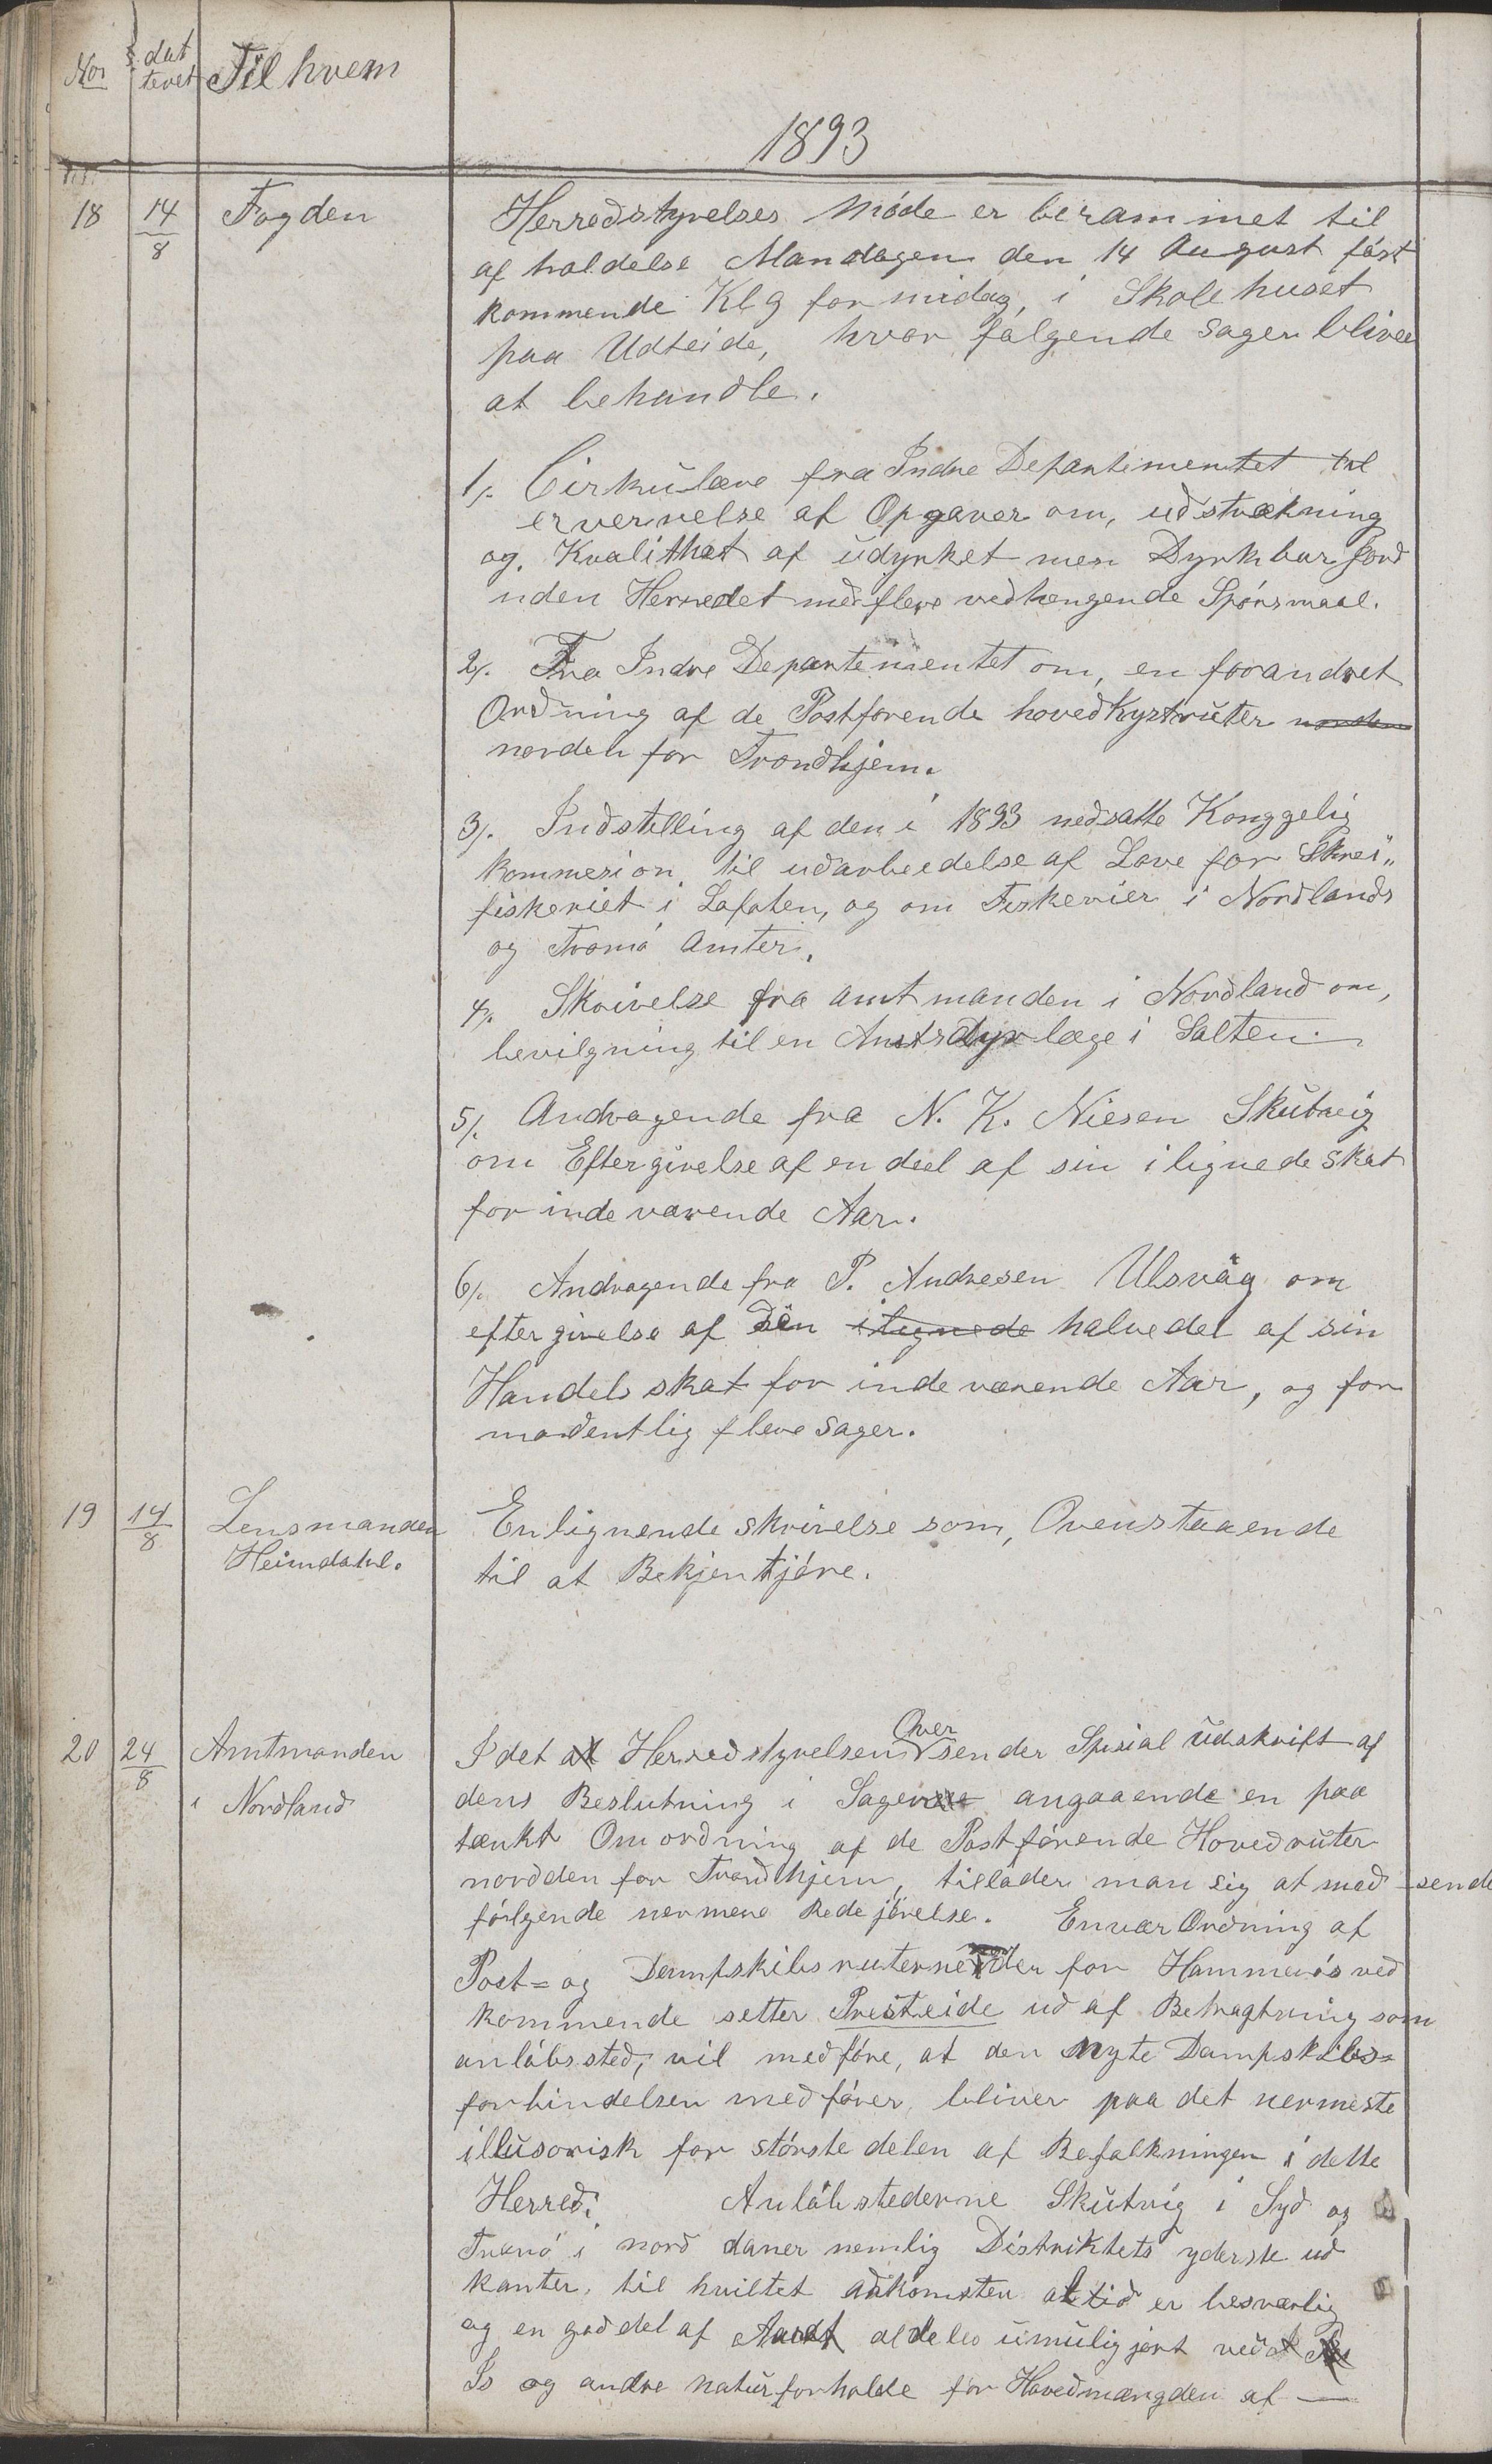 No dat
teret Til hvem
1893
18 14/8 Fogden Herredstyrelses Møde er berammet til
af holdelse Mandagen den 14 August først
kommende Kl 9 formidag, i Skolehuset
paa Udteide, hvor følgende sager bliver
at behandle.
1/. Cirkulære fra Indre Departementet til
erververlse af Opgaver om, udstrækning
og Kvalithet af udyrket men Dyrkbar Jord
inden Herredet med flere vedhengende Spørsmaal.
2/. Fra Indre Departementet om, en forandret
Ordning af de Postførende hovedkystruter norden
norden for Trondhjem.
3/. Indstilling af den i 1893 nedsatte Konggelig
kommesion, til udarbeidelse af Love for Skrei"
fiskeriet i Lofoten, og om Fiskerier i Nordlands
og Tromsø Amter.
4/. Skrivelse fra amtmanden i Nordland om,
bevilgning til en Amtsdyrlæge i Salten.
5/. Andragende fra N. K. Niesen Skutvig
om Eftergivelse af en deel af sin ilignede skat
for indeværende Aar.
6/. Andragende fra P. Andresen Ulsvåg om
eftergivelse af den ilignede halvedel af sin
Handels skat for indeværende Aar, og for
modentlig flere sager.
19 14/8 Lensmanden En lignende skrivelse som, Ovenstaaende
Heimdahl. til at Bekjentjøre.
20 24/8 Amtmanden I det at Herredstyrelsen Over sender Spesial udskrift af
i Nordland dens Beslutning i Sagen angaaende en paa
tænkt Omordning af de Postførende Hovedruter
nordden for Trondhjem, tillader man sig at med sende
følgende nermere Redejørelse. Envær Ordning af
Post= og Dampskibsruterne der for Hammerøs ved
kommende setter Presteide ud af Betragtning som
anløbssted, vil medføre, at den Nyte Dampskibs=
forbindelsen medfører, bliver paa det nermeste
illusorisk for største delen af Befolkningen i dette
Herred. Anløbstederne Skutvig i Syd og
Tranø i nord daner nemlig Distriktets yderste ud
kanter, til hviltet adkomsten altid er besværlig
og en god del af Aaret aldeles umuligjørt ved
Is og andre naturforholde for Hovedmængden af —